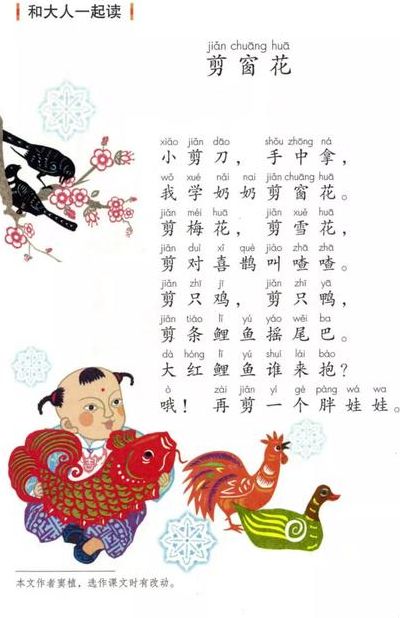 和大人一起读
jiǎn chuāng huā
剪窗花
xiǎo jiǎn dāo shǒu zhōng ná
小剪刀，手中拿，
wǒ xué nǎi nai jiǎn chuāng huā
我学奶奶剪窗花。
jiǎn méi huā jiǎn xuě huā
剪梅花，剪雪花，
jiǎn duì xǐ què jiào zhā zhā
剪对喜鹊叫喳喳。
jiǎn zhī jī jiǎn zhī yā
剪只鸡，剪只鸭，
jiǎn tiáo lǐ yú yáo wěi ba
剪条鲤鱼摇尾巴。
dà hóng lǐ yú shuí lái bào
大红鲤鱼谁来抱？
ò zài jiǎn yí gè pàng wá wa
哦！再剪一个胖娃娃。
本文作者窦植，选作课文时有改动。